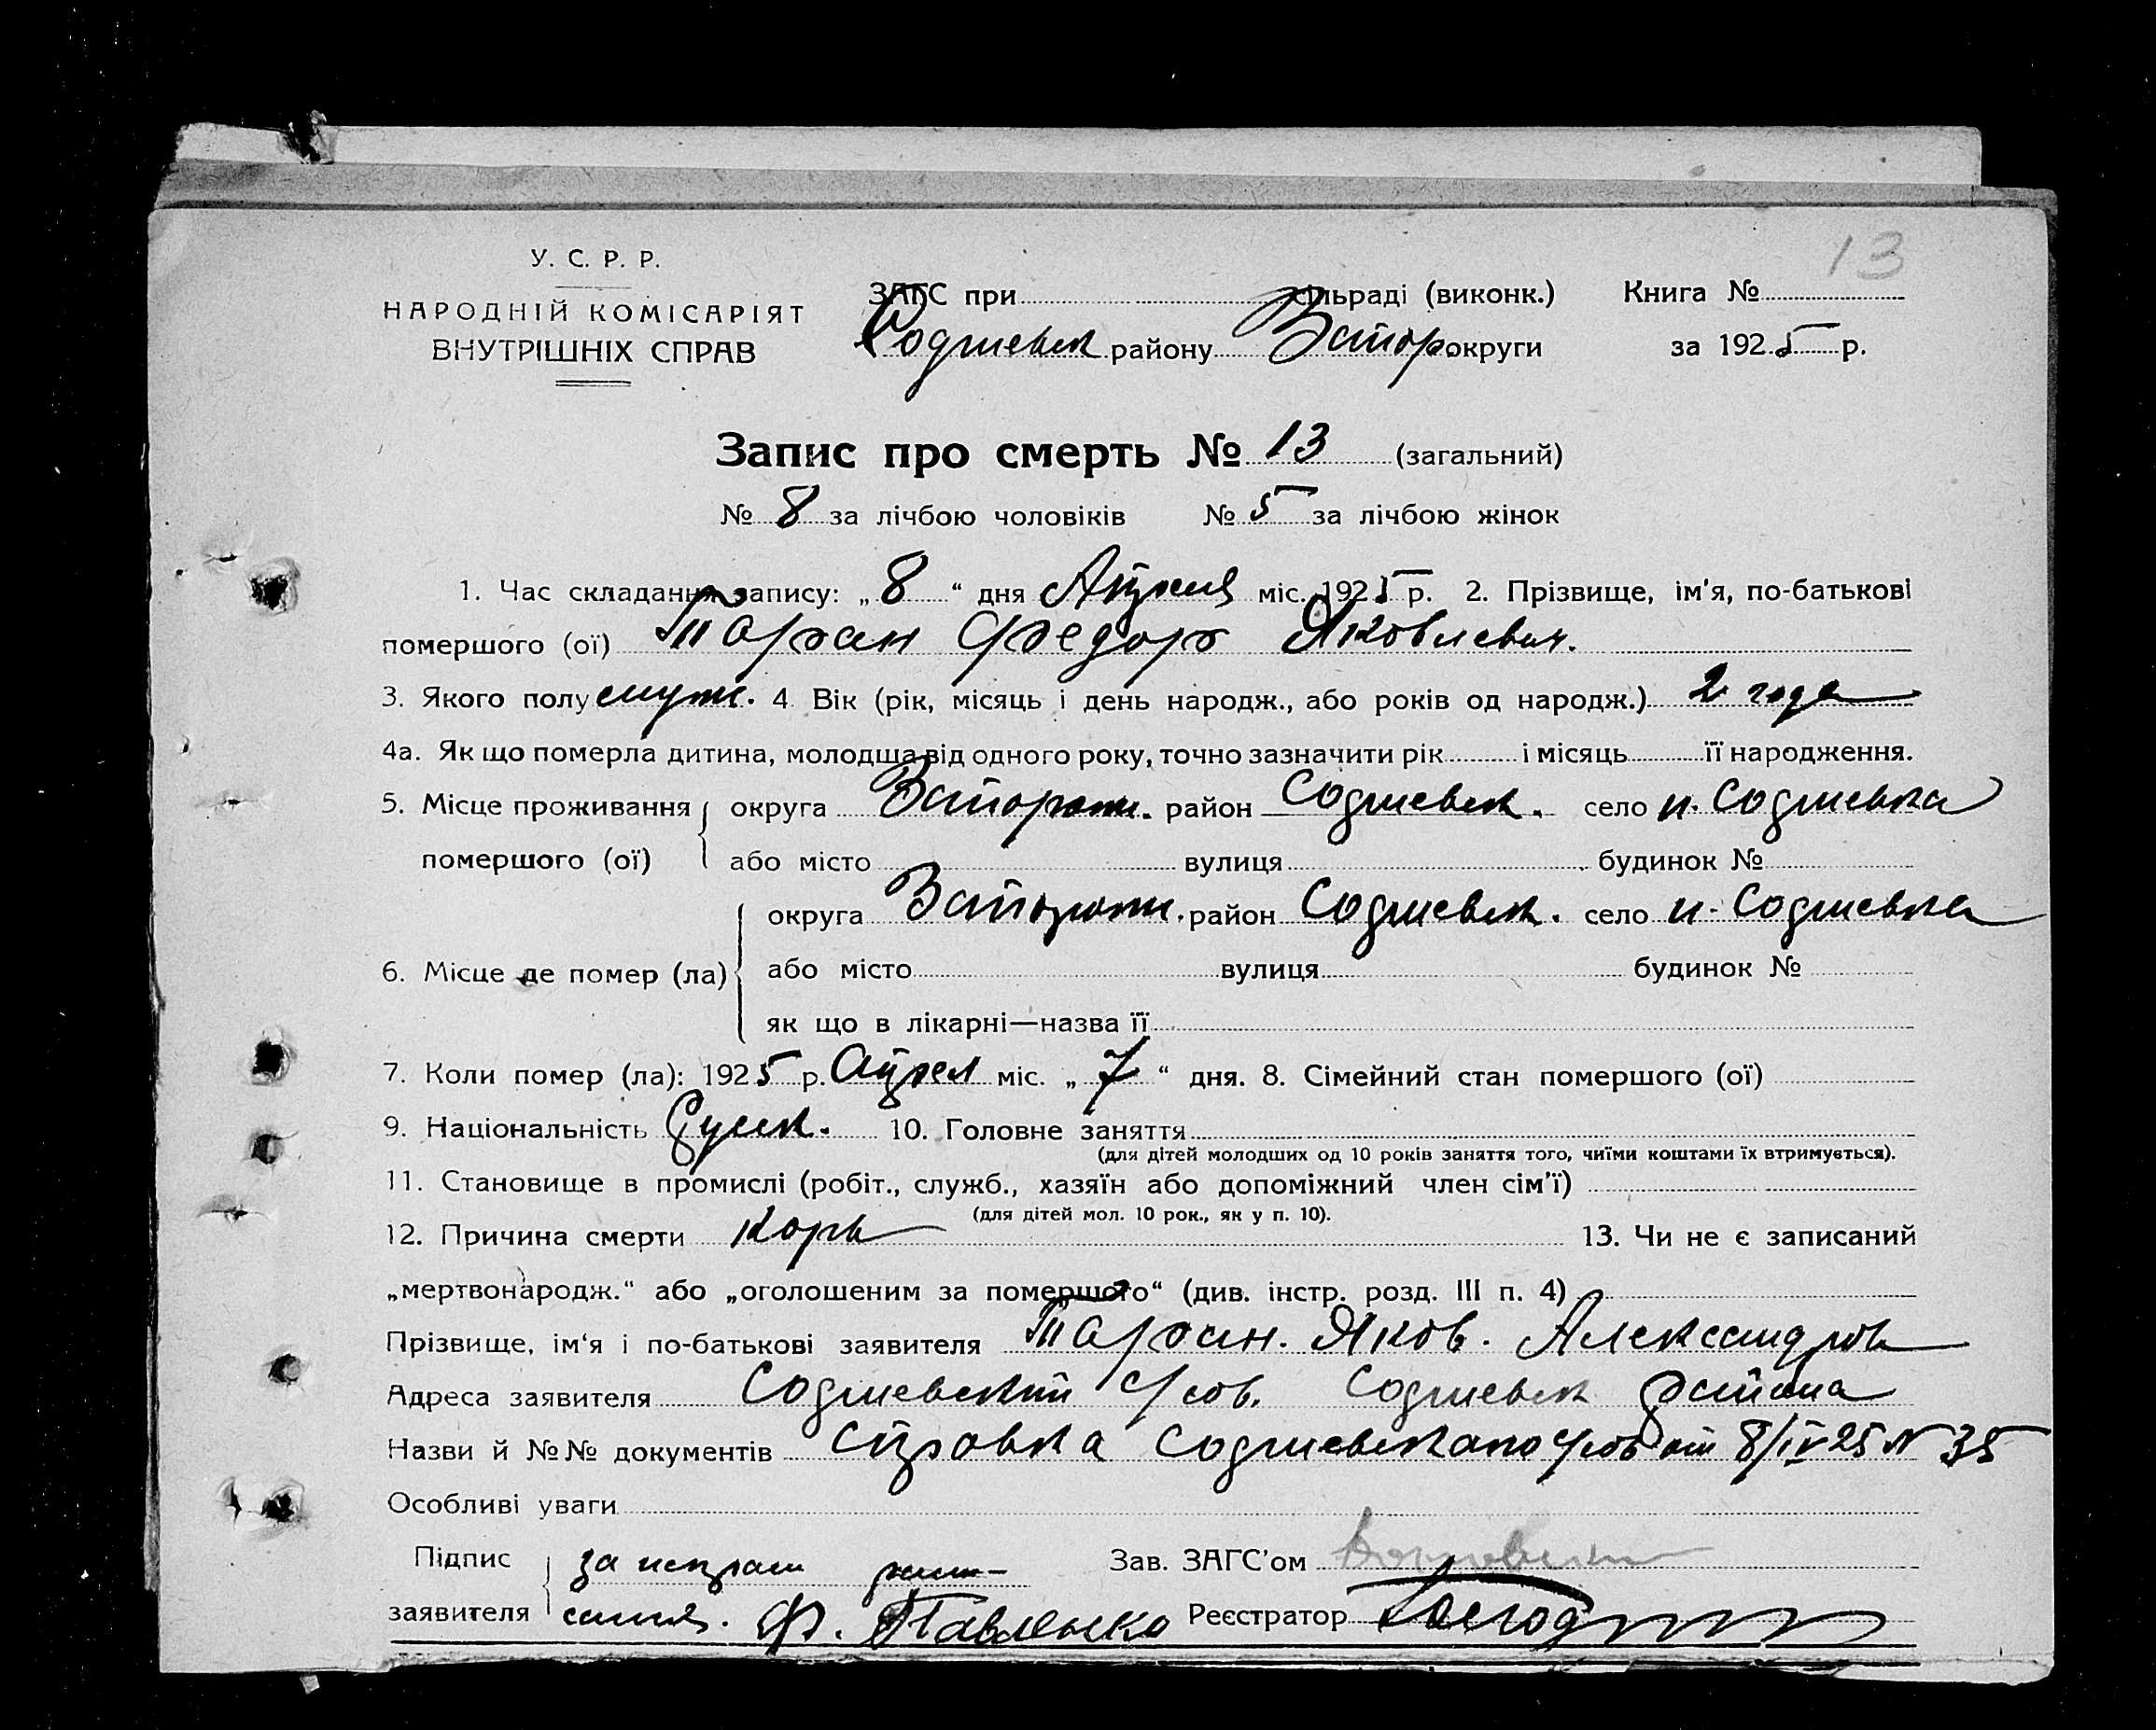 13
У. С. Р. Р.
НАРОДНІЙ КОМІСАРІЯТ
ВНУТРІШНІХ СПРАВ
ЗАГС при сільраді (виконк.) Книга №
Софиевск району Запор округи за 1925 р.
Запис про смерть № 13 (загальний)
№ 8 за лічбою чоловіків № 5 за лічбою жінок
1. Час складання запису: „ 8 “ дня Апреля міс. 1925 р. 2. Прізвище, ім'я, по-батькові
помершого (ої) Таран Федор Яковлевич.
3. Якого полу муж. 4 Вік (рік, місяць і день народж., або років од народж.) 2 года
4а. Як що померла дитина, молодща від одного року, точно зазначити рік і місяць її народження.
5. Місце проживання округа Запорож. район Софиевск. село н. Софиевка
помершого (ої) або місто вулиця будинок №
округа Запорож. район Софиевск. село н. Софиевка
6. Місце де помер (ла) або місто вулиця будинок №
як що в лікарні—назва її
7. Коли помер (ла): 1925 р. Апрел міс. „ 7 “ дня. 8. Сімейний стан помершого (ої)
9. Національність 10. Головне заняття
(для дітей молодших од 10 років заняття того, чиїми коштами їх втримується).
11. Становище в промислі (робіт., служб., хазяїн або допоміжний член сім'ї)
(для дітей мол. 10 рок., як у п. 10).
12. Причина смерти Корь 13. Чи не є записаний
„мертвонародж.“ або „оголошеним за помершого“ (див. інстр. розд. III п. 4)
Прізвище, ім'я і по-батькові заявителя Таран. Яков. Александров
Адреса заявителя Софиевский с/сов. Софиевск района
Назви й №№ документів справка Софиевскаго с/сов от 8/IV 25 N 35
Особливі уваги
Підпис за неграм Зав. ЗАГС'ом
заявителя Ф. Павленко Реєстратор